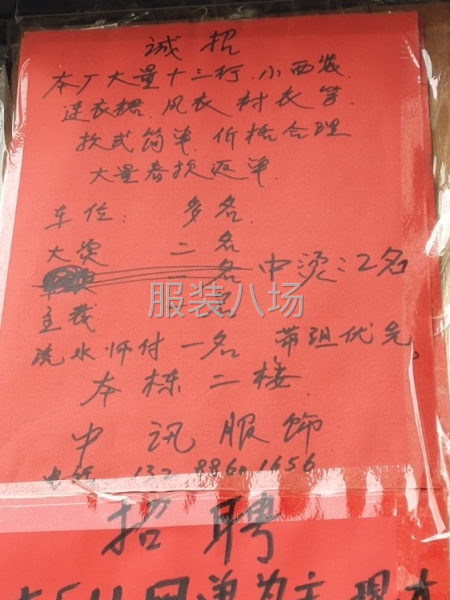 诚招
本厂大量十三行.小西装.
连衣裙.风衣 衬衣等
款式简单 价格合理
大量春换返单.
车位: 多名.
大烫 二名
一名 中烫:2名
主裁 一名
洗水师付一名 带组优先。
本栋二楼
中讯服饰
招聘
服装八场